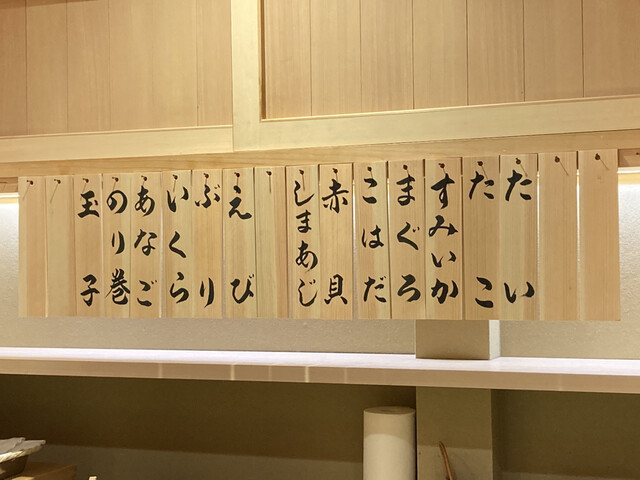 たい
たこ
すみいか
まぐろ
こはだ
赤貝
しまあじ
えび
ぶり
いくら
あなご
のり巻
玉子